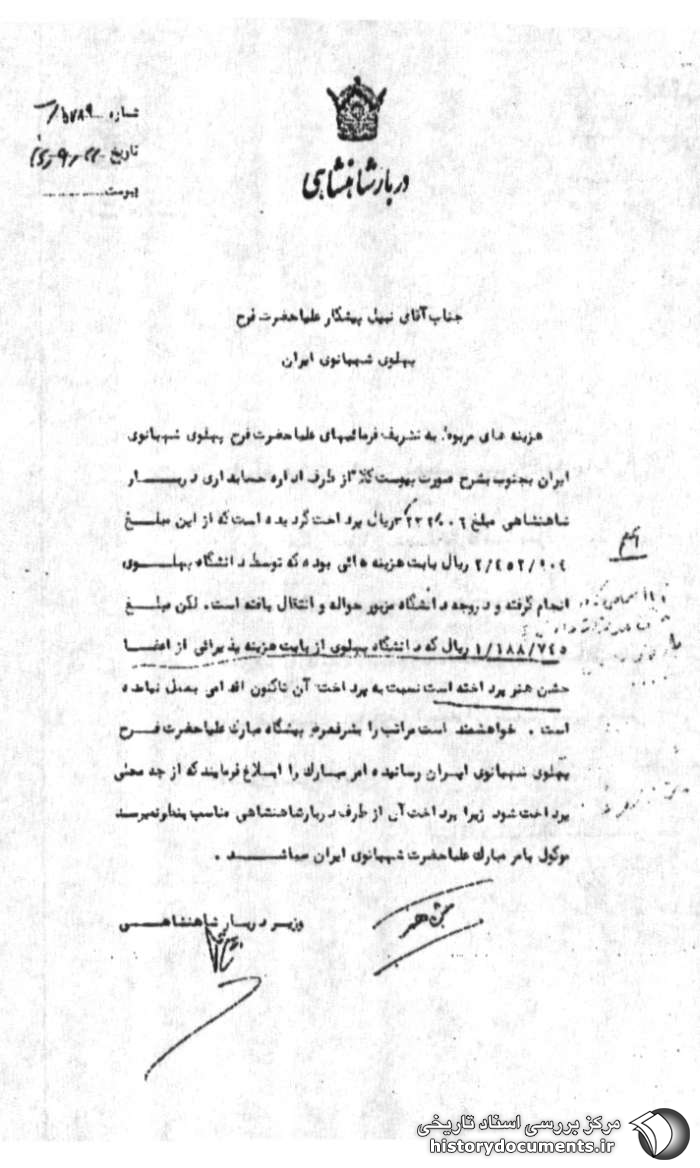 شماره ۵۷۸۹
تاریخ
پیوست
دربار شاهنشاهی
جناب آقای نبیل پیشکار علیاحضرت فرح
پهلوی شهبانوی ایران
هزینه های مربوط به تشریف فرمائیهای علیاحضرت فرح پهلوی شهبانوی
ایران بجنوب بشرح صورت پیوست کلا از طرف اداره حسابداری دربار
شاهنشاهی مبلغ ریال پرداخت گردیده است که از این مبلغ
۲/۴۵۲/۹۰۴ ریال بابت هزینه هائی بوده که توسط دانشگاه پهلوی
انجام گرفته و در وجه دانشگاه مزبور حواله و انتقال یافته است . لکن مبلغ
۱/۱۸۸/۷۴۵ ریال که دانشگاه پهلوی از بابت هزینه پذیرائی از اعضا
جشن هنر پرداخته است نسبت به پرداخت آن تاکنون اقدامی بعمل نیامده
است . خواهشمند است مراتب را بشرفعرض پیشگاه مبارک علیاحضرت فرح
پهلوی شهبانوی ایران رسانیده امر مبارک را ابلاغ فرمایند که از چه محلی
پرداخت شود زیرا پرداخت آن از طرف دربار شاهنشاهی مناسب بنظر نمیرسد
موکول بامر مبارک علیاحضرت شهبانوی ایران میباشد .
وزیر دربار شاهنشاهی
جشن هنر
مرکز بررسی اسناد تاریخی
historydocuments.ir